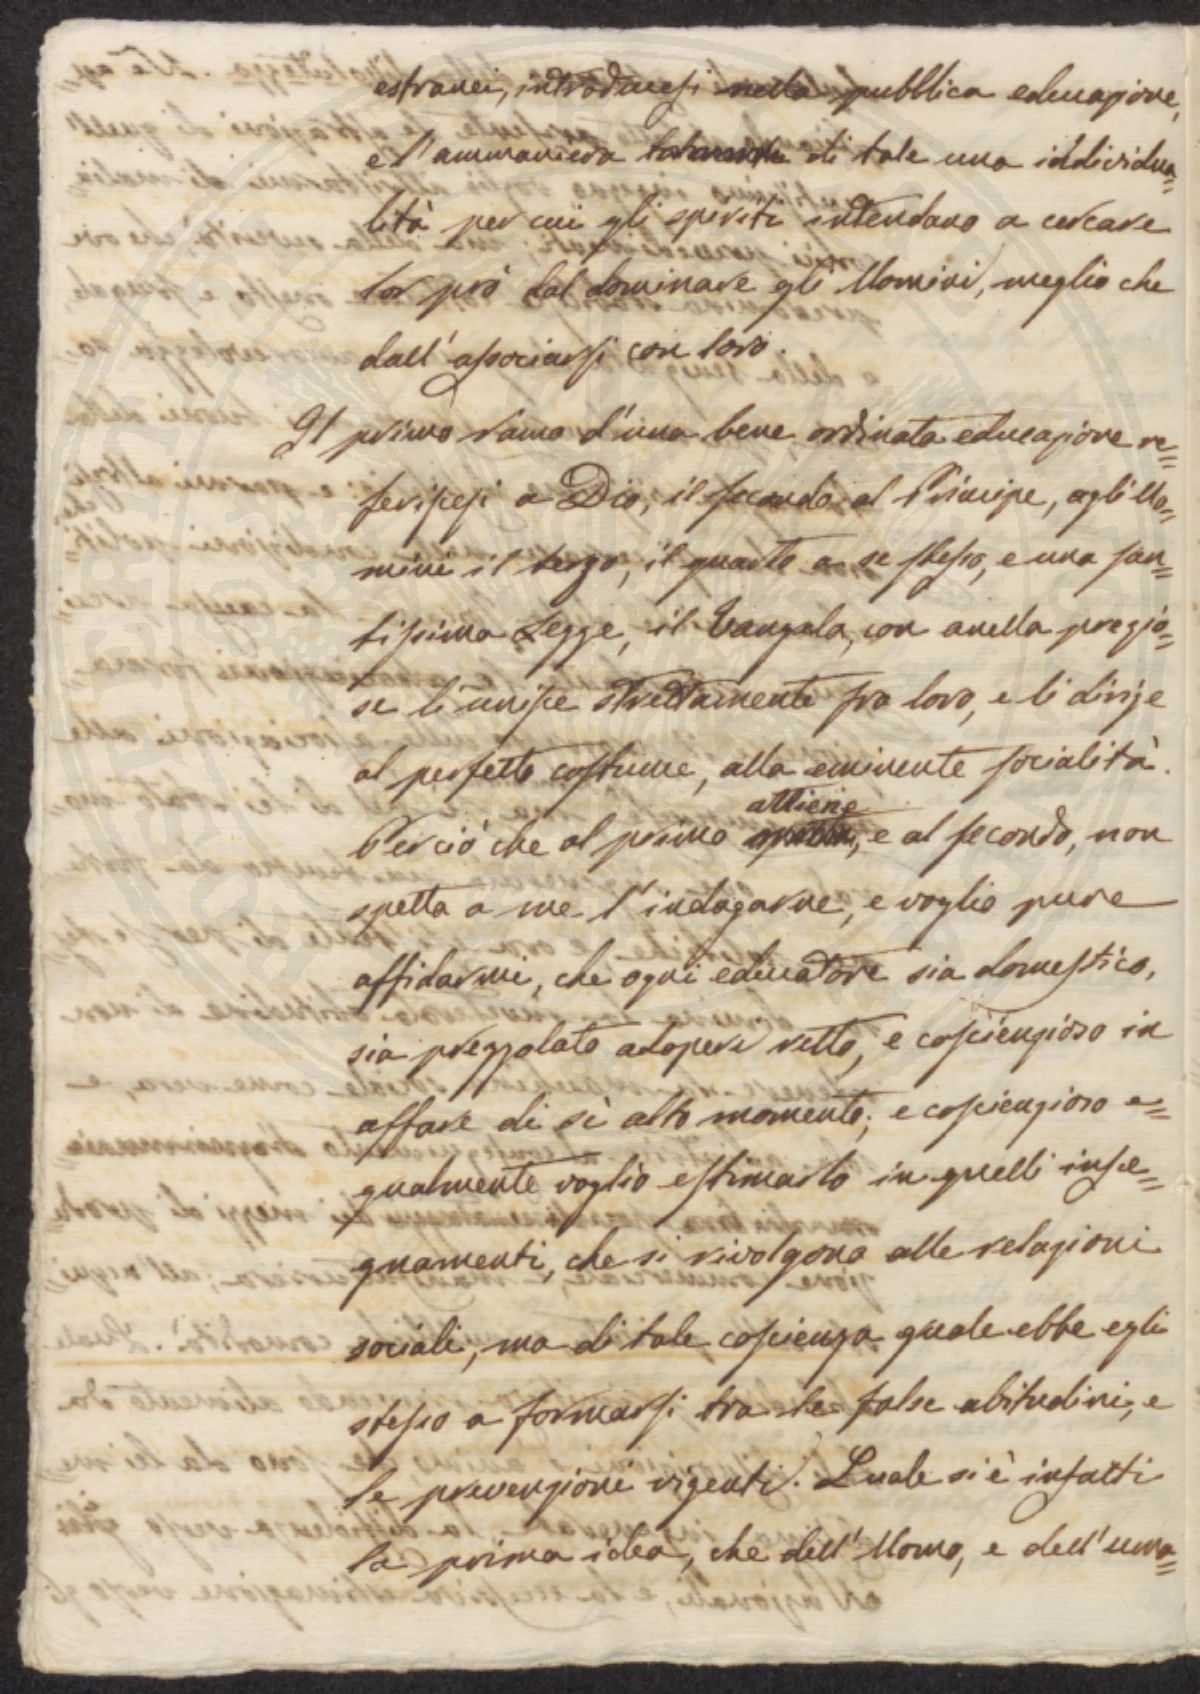 estranei, introducesi nella pubblica educazione,
e l'ammaniera talmente di tale una individua=
lità per cui gli spiriti intendano a cercare
lor prò dal dominare gli Uomini, meglio che
dall'associarsi con loro.
Il primo ramo d'una bene ordinata educazione re=
feriscesi a Dio, il secondo al Principe, agli Uo=
mini il terzo, il quarto a se stesso, e una san=
tissima Legge, il Vangelo, con anella prezio=
se li unisce strettamente fra loro, e li dirije
al perfetto costume, alla eminente socialità.
attiene
Perciò che al primo e al secondo, non
spetta a me l'indagarne, e voglio pure
affidarmi, che ogni educatore sia domestico,
sia prezzolato adoperi retto, e coscienzioso in
affare di sì alto momento; e coscienzioso e=
gualmente voglio estimarlo in quelli inse=
gnamenti, che si rivolgono alle relazioni
sociali, ma di tale coscienza quale ebbe egli
stesso a formarsi tra le false abitudini, e
le prevenzioni vigenti. Quale si è infatti
la prima idea, che dell'Uomo, e dell'uma=